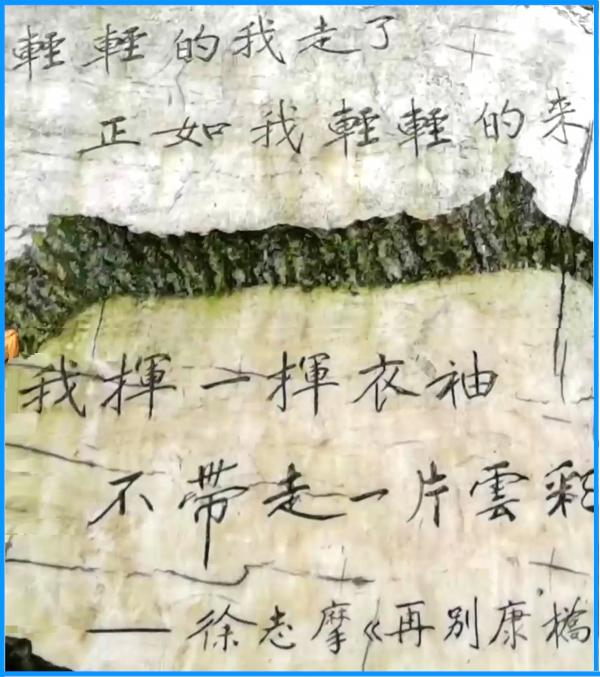 輕輕的我走了
正如我輕輕的来
我揮一揮衣袖
不帶走一片雲彩
——徐志摩《再别康橋